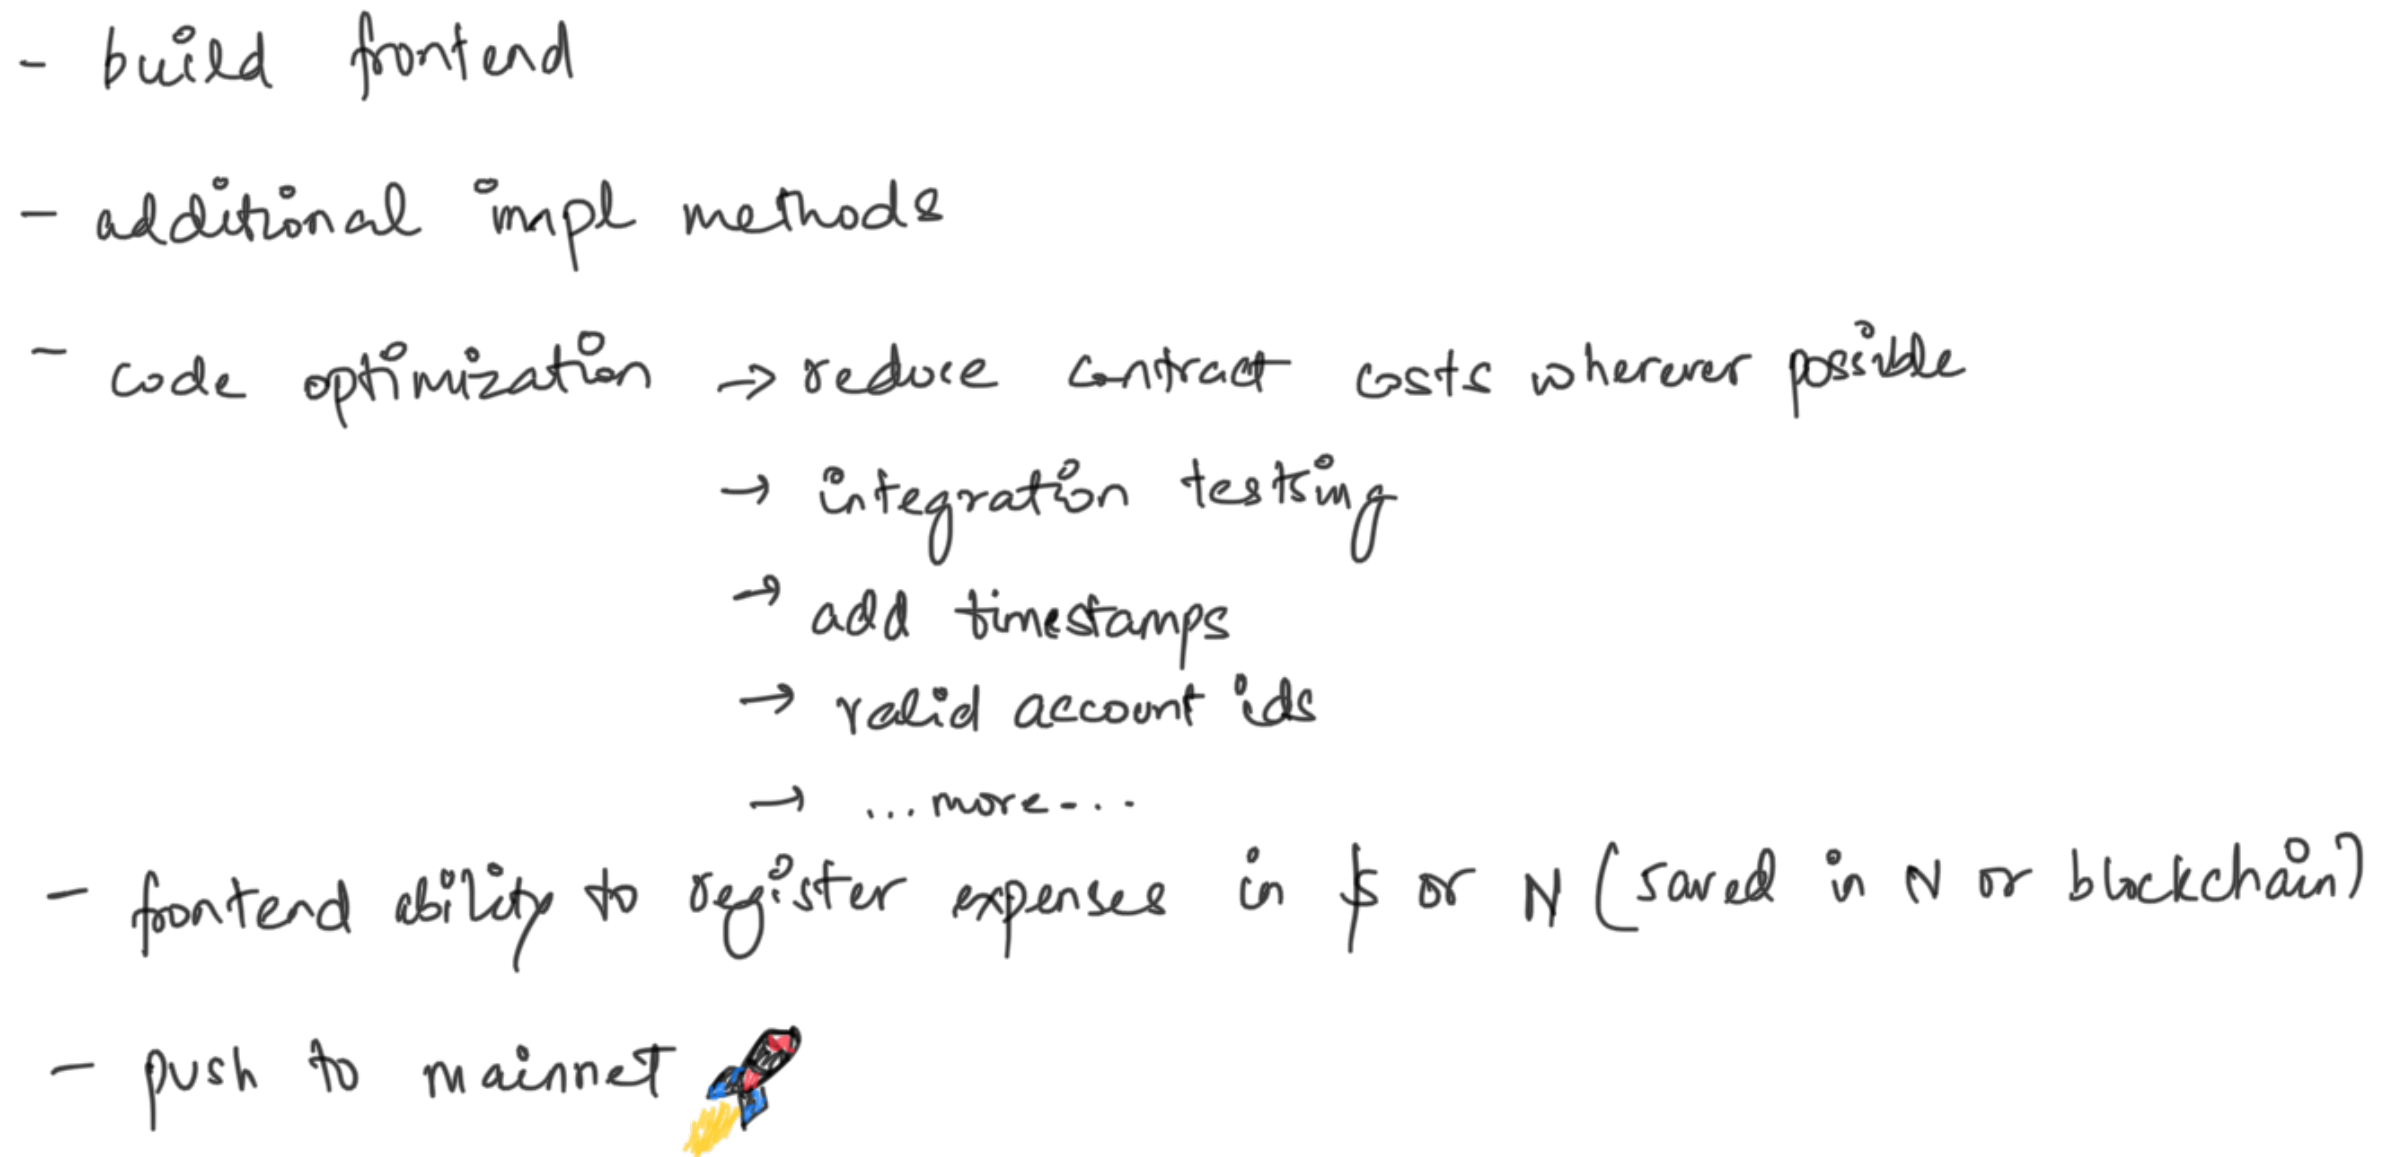 - build frontend
- additional impl methods
- code optimization → reduce contract costs wherever possible
→ integration testing
→ add timestamps
→ valid account ids
→ ...more....
- frontend ability to register expenses in $ or N (saved in N or blockchain)
- push to mainnet